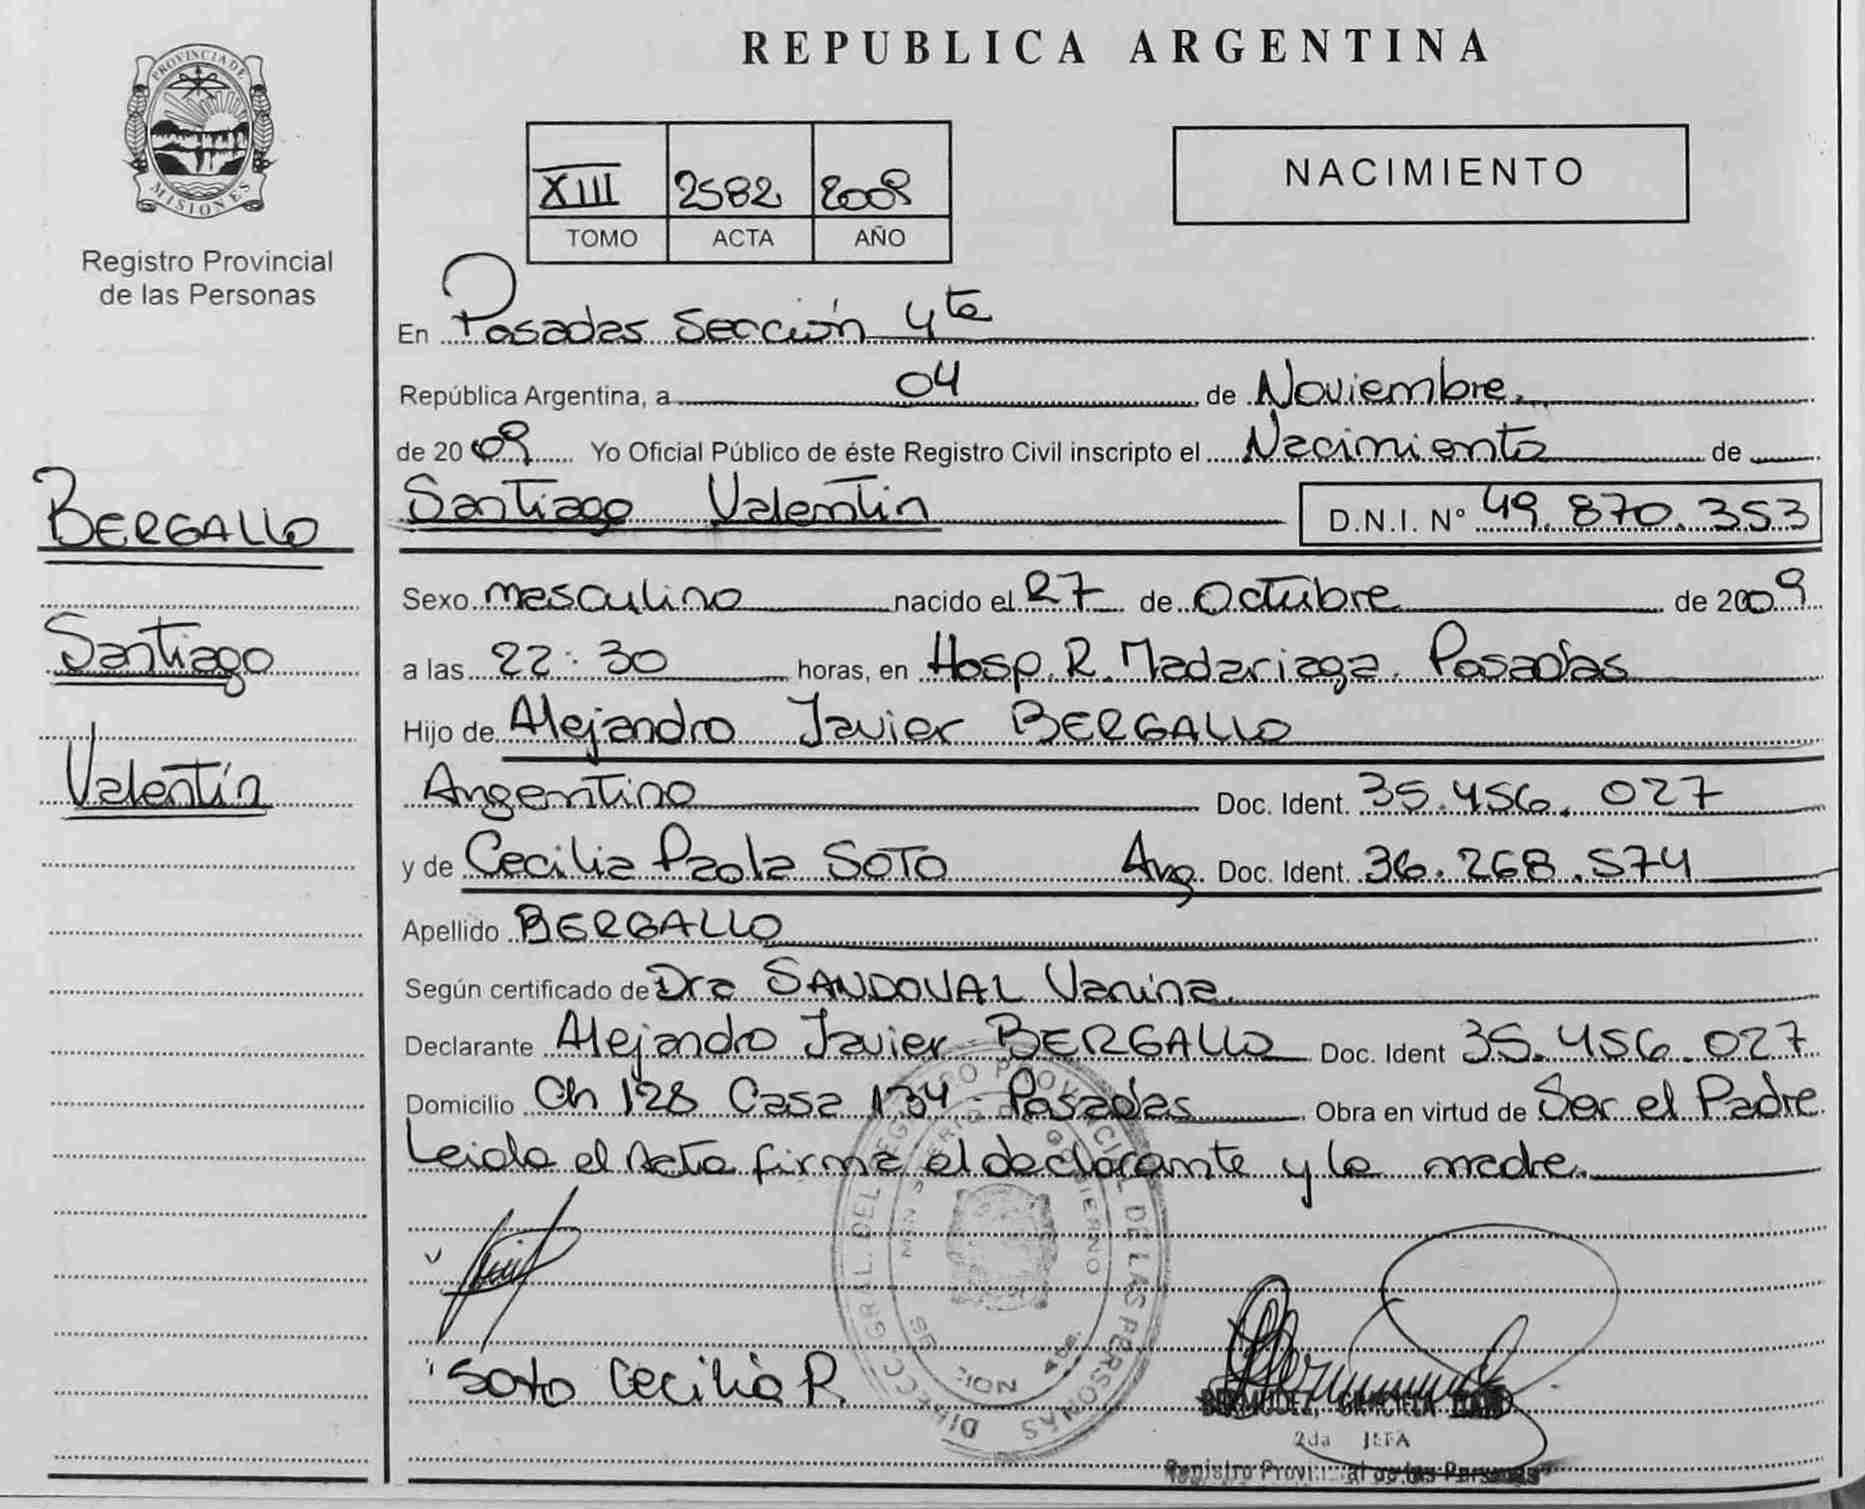 REPUBLICA ARGENTINA
PROVINCIA DE
MISIONES
Registro Provincial
de las Personas
XIII 2582 2009
TOMO ACTA AÑO
NACIMIENTO
En Posadas Sección 4ta
República Argentina, a 04 de Noviembre
de 2009 Yo Oficial Público de éste Registro Civil inscripto el Nacimiento de
Santiago Valentin D.N.I. N° 49.870.353
BERGALLO
Santiago
Valentín
Sexo masculino nacido el 27 de Octubre de 2009
a las 22:30 horas, en Hosp. R. Madariaga. Posadas
Hijo de Alejandro Javier BERGALLO
Argentino Doc. Ident. 35.456.027
y de Cecilia Paola SOTO Arg. Doc. Ident. 36.268.574
Apellido BERGALLO
Según certificado de Dra SANDOVAL Vanina.
Declarante Alejandro Javier BERGALLO Doc. Ident 35.456.027
Domicilio Ch 128 Casa 134 - Posadas Obra en virtud de Ser el Padre
Leida el Acta firma el declarante y la madre.
Soto Cecilia P.
DIRECC. GRAL. DEL REGISTRO PROVINCIAL DE LAS PERSONAS
GOBIERNO
BERMUDEZ, GRACIELA
2da JEFA
Registro Provincial de las Personas